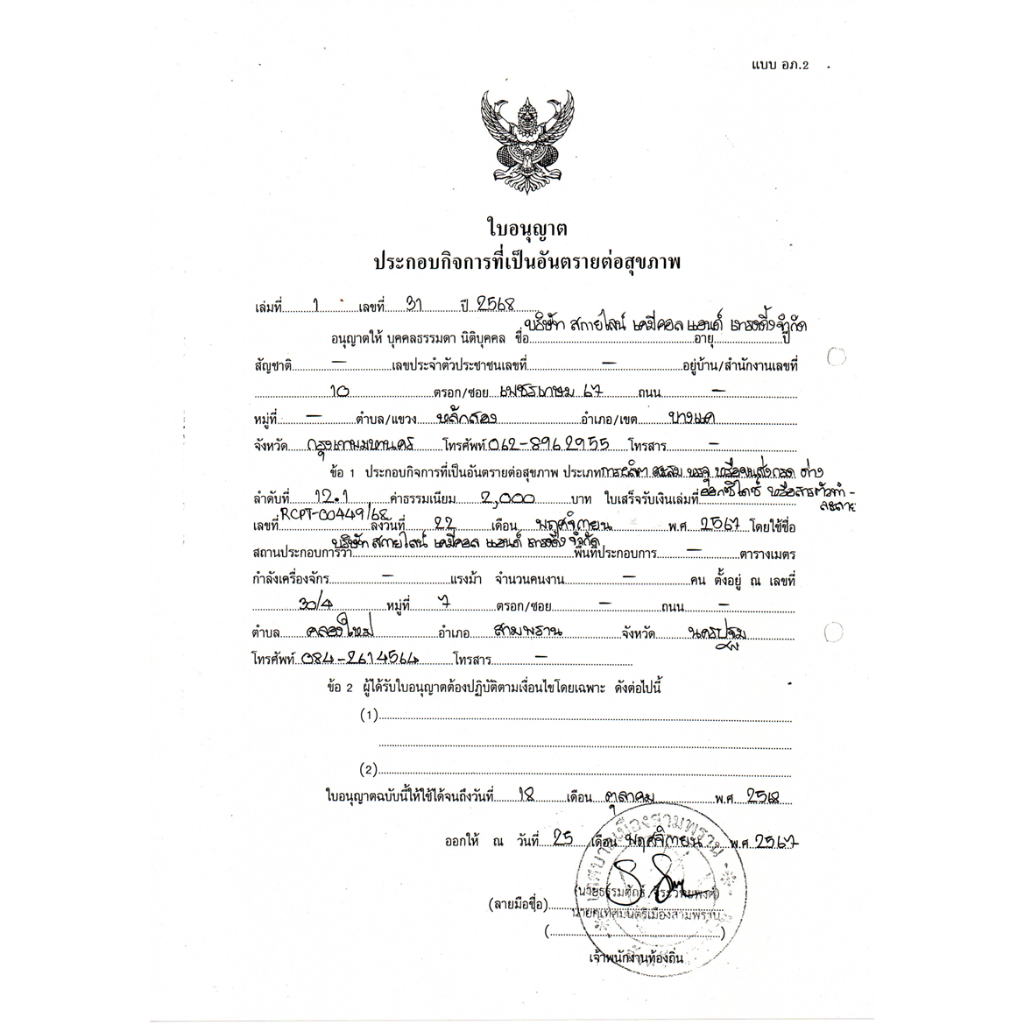 แบบ อภ.2
ใบอนุญาต
ประกอบกิจการที่เป็นอันตรายต่อสุขภาพ
เล่มที่ 1 เลขที่ 31 ปี 2568
อนุญาตให้ บุคคลธรรมดา นิติบุคคล ชื่อ บริษัท สกายไลน์ เคมีคอล แอนด์ เทรดดิ้ง จำกัด อายุ ปี
สัญชาติ — เลขประจำตัวประชาชนเลขที่ — อยู่บ้าน/สำนักงานเลขที่
10 ตรอก/ซอย เพชรเกษม 67 ถนน —
หมู่ที่ — ตำบล/แขวง หลักสอง อำเภอ/เขต บางแค
จังหวัด กรุงเทพมหานคร โทรศัพท์ 062-8962955 โทรสาร —
ข้อ 1 ประกอบกิจการที่เป็นอันตรายต่อสุขภาพ ประเภท การผลิต สะสม บรรจุ หรือขนส่งกรด ด่าง
ลำดับที่ 12.1 ค่าธรรมเนียม 2,000 บาท ใบเสร็จรับเงินเล่มที่ ออกซิไดซ์ หรือสารตัวทำ-
ละลาย
เลขที่ RCPT-00449/68 ลงวันที่ 22 เดือน พฤศจิกายน พ.ศ 2567 โดยใช้ชื่อ
สถานประกอบการว่า บริษัท สกายไลน์ เคมีคอล แอนด์ เทรดดิ้ง จำกัด พื้นที่ประกอบการ — ตารางเมตร
กำลังเครื่องจักร — แรงม้า จำนวนคนงาน — คน ตั้งอยู่ ณ เลขที่
30/4 หมู่ที่ 7 ตรอก/ซอย — ถนน —
ตำบล คลองใหม่ อำเภอ สามพราน จังหวัด นครปฐม
โทรศัพท์ 084-2614564 โทรสาร —
ข้อ 2 ผู้ได้รับใบอนุญาตต้องปฏิบัติตามเงื่อนไขโดยเฉพาะ ดังต่อไปนี้
(1)
(2)
ใบอนุญาตฉบับนี้ให้ใช้ได้จนถึงวันที่ 18 เดือน ตุลาคม พ.ศ 2568
ออกให้ ณ วันที่ 25 เดือน พฤศจิกายน พ.ศ 2567
เทศบาลเมืองสามพราน
(ลายมือชื่อ)
นายกเทศมนตรีเมืองสามพราน
เจ้าพนักงานท้องถิ่น